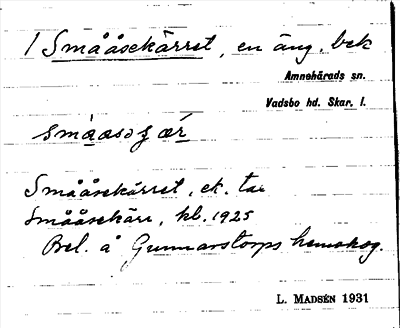 1 Smååsekärret, en äng, bek
Amnehärads sn.
Vadsbo hd. Skar. l.
Smååsekärret, ek. ta
Smååsekärr, kl. 1925
Bel. å Gunnarstorps hemskog.
L. MADSÉN 1931